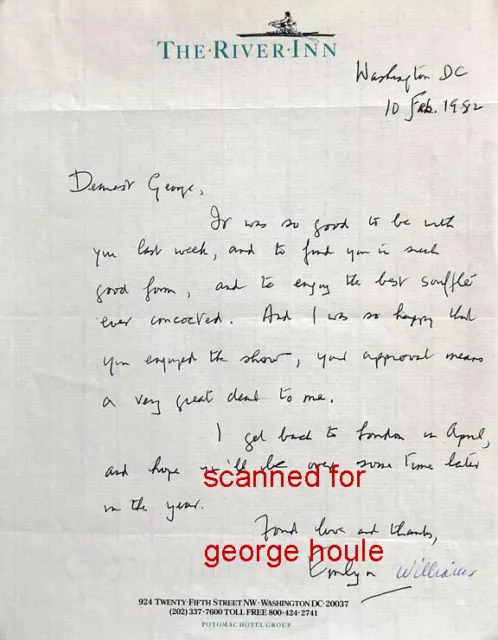 THE·RIVER·INN
Washington DC
10 Feb. 1982
Dearest George,
It was so good to be with
you last week, and to find you in such
good form, and to enjoy the best soufflé
ever concocted. And I was so happy that
you enjoyed the show, your approval means
a very great deal to me.
I get back to London in April,
and hope you'll be over some time later
in the year.
scanned for
Fond love and thanks,
george houle
Emlyn Williams
924 TWENTY-FIFTH STREET NW·WASHINGTON DC·20037
(202) 337-7600 TOLL FREE 800-424-2741
POTOMAC HOTEL GROUP